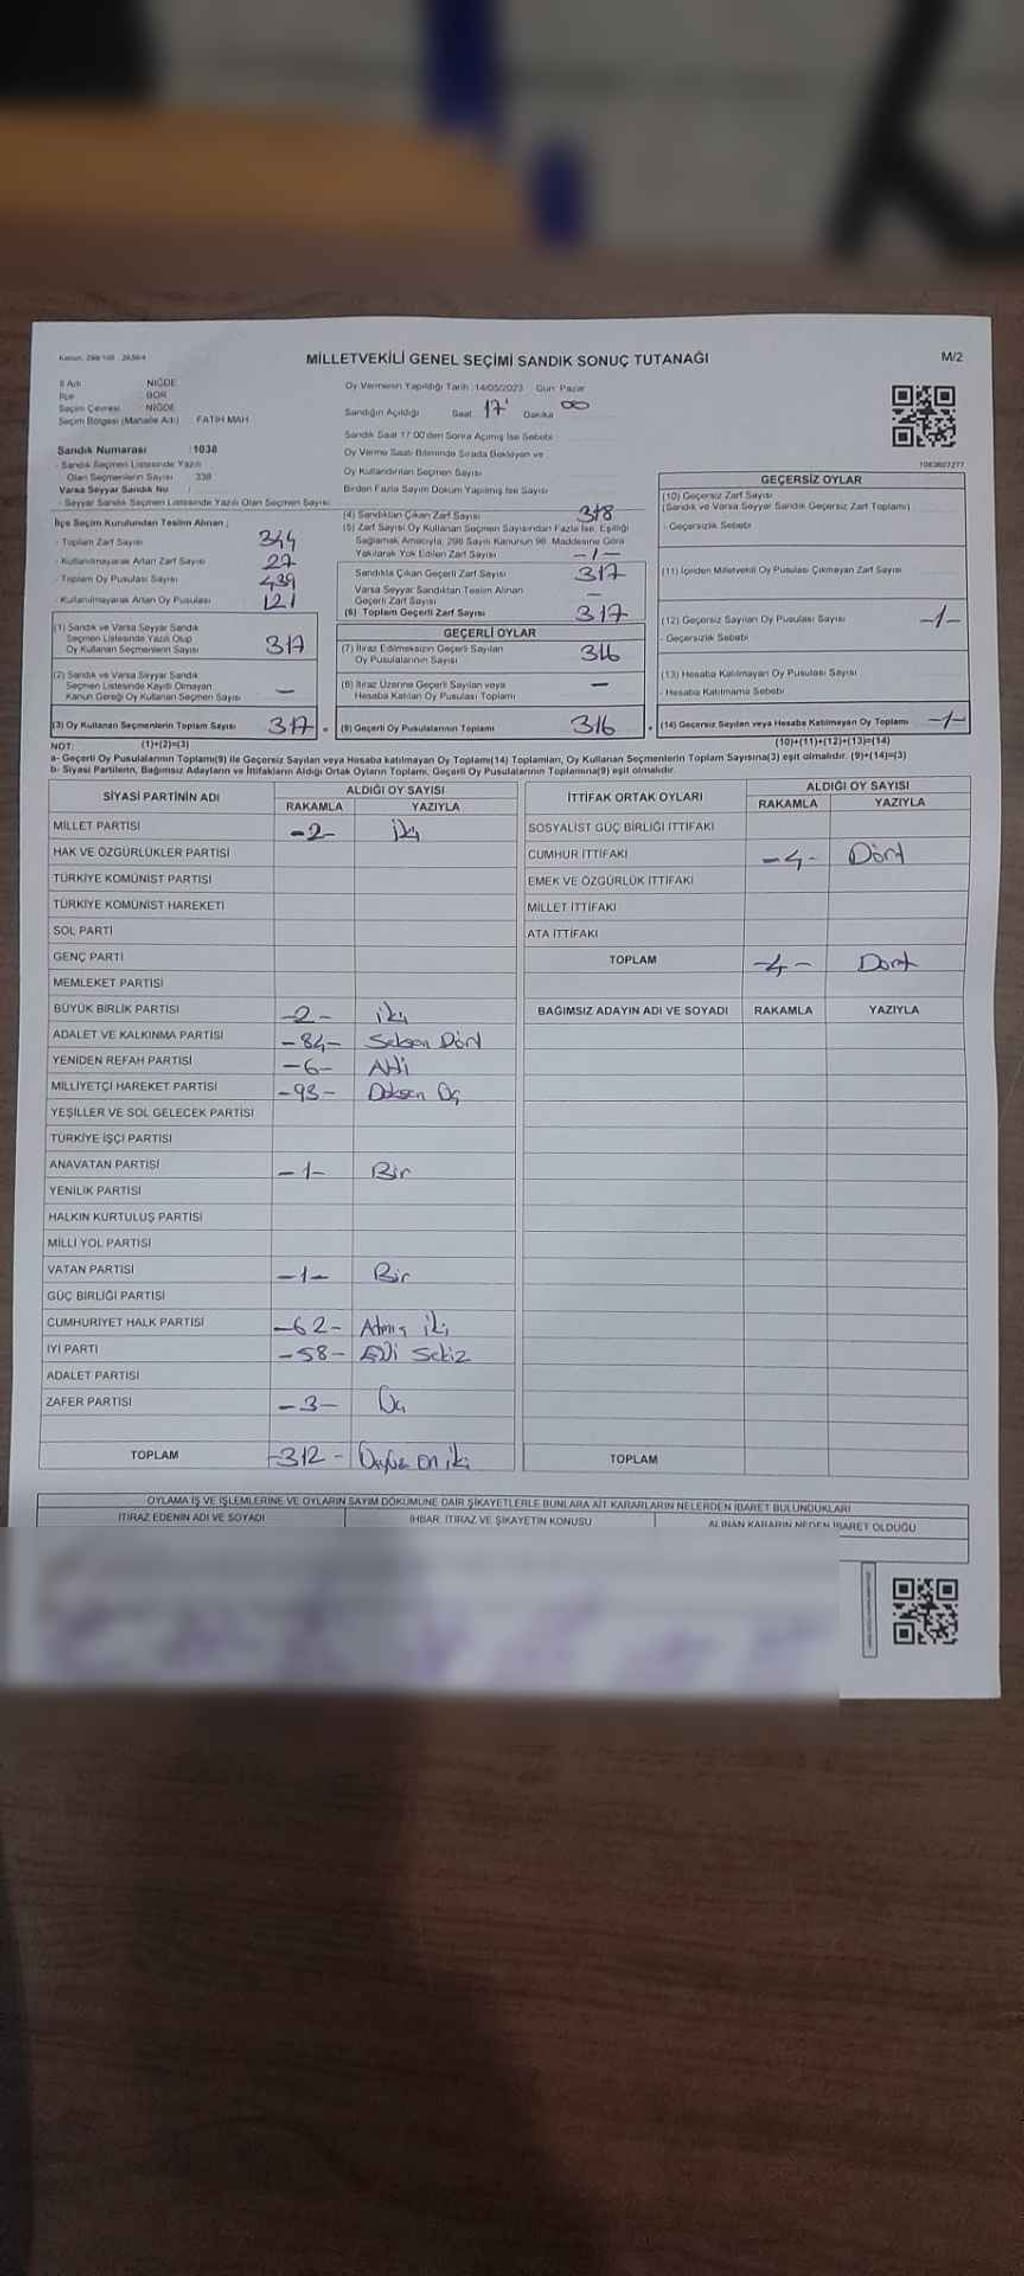 Kanun: 298/105 , 2839/4
MİLLETVEKİLİ GENEL SEÇİMİ SANDIK SONUÇ TUTANAĞI
M/2
İl Adı NİĞDE
İlçe BOR
Seçim Çevresi NİĞDE
Seçim Bölgesi (Mahalle Adı) FATİH MAH.
Sandık Numarası :1038
- Sandık Seçmen Listesinde Yazılı
Olan Seçmenlerin Sayısı : 338
Varsa Seyyar Sandık No :
- Seyyar Sandık Seçmen Listesinde Yazılı Olan Seçmen Sayısı:
Oy Vermenin Yapıldığı Tarih :14/05/2023 Gün: Pazar
Sandığın Açıldığı Saat 17 Dakika 00
Sandık Saat 17:00'den Sonra Açımış İse Sebebi
Oy Verme Saati Bitiminde Sırada Bekleyen ve
Oy Kullandırılan Seçmen Sayısı
Birden Fazla Sayım Döküm Yapılmış İse Sayısı
İlçe Seçim Kurulundan Teslim Alınan ;
- Toplam Zarf Sayısı 344
- Kullanılmayarak Artan Zarf Sayısı 27
- Toplam Oy Pusulası Sayısı 439
- Kullanılmayarak Artan Oy Pusulası 121
(1) Sandık ve Varsa Seyyar Sandık
Seçmen Listesinde Yazılı Olup
Oy Kullanan Seçmenlerin Sayısı 317
(2) Sandık ve Varsa Seyyar Sandık
Seçmen Listesinde Kayıtlı Olmayan
Kanun Gereği Oy Kullanan Seçmen Sayısı —
(3) Oy Kullanan Seçmenlerin Toplam Sayısı 317
(1)+(2)=(3)
(4) Sandıktan Çıkan Zarf Sayısı 318
(5) Zarf Sayısı Oy Kullanan Seçmen Sayısından Fazla İse, Eşitliği
Sağlamak Amacıyla, 298 Sayılı Kanunun 98. Maddesine Göre
Yakılarak Yok Edilen Zarf Sayısı -1-
Sandıkta Çıkan Geçerli Zarf Sayısı 317
Varsa Seyyar Sandıktan Teslim Alınan
Geçerli Zarf Sayısı —
(6) Toplam Geçerli Zarf Sayısı 317
GEÇERLİ OYLAR
(7) İtiraz Edilmeksizin Geçerli Sayılan
Oy Pusulalarının Sayısı 316
(8) İtiraz Üzerine Geçerli Sayılan veya
Hesaba Katılan Oy Pusulası Toplamı —
(9) Geçerli Oy Pusulalarının Toplamı 316
1083807277
GEÇERSİZ OYLAR
(10) Geçersiz Zarf Sayısı
(Sandık ve Varsa Seyyar Sandık Geçersiz Zarf Toplamı)
- Geçersizlik Sebebi
(11) İçinden Milletvekili Oy Pusulası Çıkmayan Zarf Sayısı
(12) Geçersiz Sayılan Oy Pusulası Sayısı -1-
- Geçersizlik Sebebi
(13) Hesaba Katılmayan Oy Pusulası Sayısı
- Hesaba Katılmama Sebebi
(14) Geçersiz Sayılan veya Hesaba Katılmayan Oy Toplamı -1-
(10)+(11)+(12)+(13)=(14)
NOT:
a- Geçerli Oy Pusulalarının Toplamı(9) ile Geçersiz Sayılan veya Hesaba katılmayan Oy Toplamı(14) Toplamları, Oy Kullanan Seçmenlerin Toplam Sayısına(3) eşit olmalıdır. (9)+(14)=(3)
b- Siyasi Partilerin, Bağımsız Adayların ve İttifakların Aldığı Ortak Oyların Toplamı, Geçerli Oy Pusulalarının Toplamına(9) eşit olmalıdır.
SİYASİ PARTİNİN ADI ALDIĞI OY SAYISI
RAKAMLA YAZIYLA
MİLLET PARTİSİ -2- iki
HAK VE ÖZGÜRLÜKLER PARTİSİ
TÜRKİYE KOMÜNİST PARTİSİ
TÜRKİYE KOMÜNİST HAREKETİ
SOL PARTİ
GENÇ PARTİ
MEMLEKET PARTİSİ
BÜYÜK BİRLİK PARTİSİ -2- iki
ADALET VE KALKINMA PARTİSİ -84- Seksen Dört
YENİDEN REFAH PARTİSİ -6- Altı
MİLLİYETÇİ HAREKET PARTİSİ -93- Doksan Üç
YEŞİLLER VE SOL GELECEK PARTİSİ
TÜRKİYE İŞÇİ PARTİSİ
ANAVATAN PARTİSİ -1- Bir
YENİLİK PARTİSİ
HALKIN KURTULUŞ PARTİSİ
MİLLİ YOL PARTİSİ
VATAN PARTİSİ -1- Bir
GÜÇ BİRLİĞİ PARTİSİ
CUMHURİYET HALK PARTİSİ -62- Atmış iki
İYİ PARTİ -58- Elli Sekiz
ADALET PARTİSİ
ZAFER PARTİSİ -3- Üç
TOPLAM -312- Üçyüz on iki
İTTİFAK ORTAK OYLARI ALDIĞI OY SAYISI
RAKAMLA YAZIYLA
SOSYALİST GÜÇ BİRLİĞİ İTTİFAKI
CUMHUR İTTİFAKI -4- Dört
EMEK VE ÖZGÜRLÜK İTTİFAKI
MİLLET İTTİFAKI
ATA İTTİFAKI
TOPLAM -4- Dört
BAĞIMSIZ ADAYIN ADI VE SOYADI RAKAMLA YAZIYLA
TOPLAM
OYLAMA İŞ VE İŞLEMLERİNE VE OYLARIN SAYIM DÖKÜMÜNE DAİR ŞİKAYETLERLE BUNLARA AİT KARARLARIN NELERDEN İBARET BULUNDUKLARI
İTİRAZ EDENİN ADI VE SOYADI İHBAR, İTİRAZ VE ŞİKAYETİN KONUSU ALINAN KARARIN NEDEN İBARET OLDUĞU